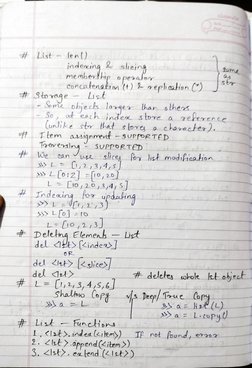 # List - len()
indexing & slicing
membership operator
concatenation (+) & replication (*)
same as str
# Storage - List
- Some objects larger than others
- So, at each index store a reference
(unlike str that stores a character).
# Item assignment - SUPPORTED
Traversing - SUPPORTED
# We can use slices for list modification
>>> L = [1,2,3,4,5]
>>> L[0:2] = [10,20]
L = [10,20,3,4,5]
# Indexing for updating
>>> L = [1,2,3]
>>> L[0] = 10
L = [10,2,3]
# Deleting Elements - List
del <lst>[<index>]
OR
del <lst>[<slice>]
del <lst> # deletes whole lst object
# L = [1,2,3,4,5,6]
Shallow Copy v/s Deep/True Copy
>>> a = L >>> a = list(L)
>>> a = L.copy()
# List - Functions
1. <lst>.index(<item>) If not found, error
2. <lst>.append(<item>)
3. <lst>.extend(<lst>)